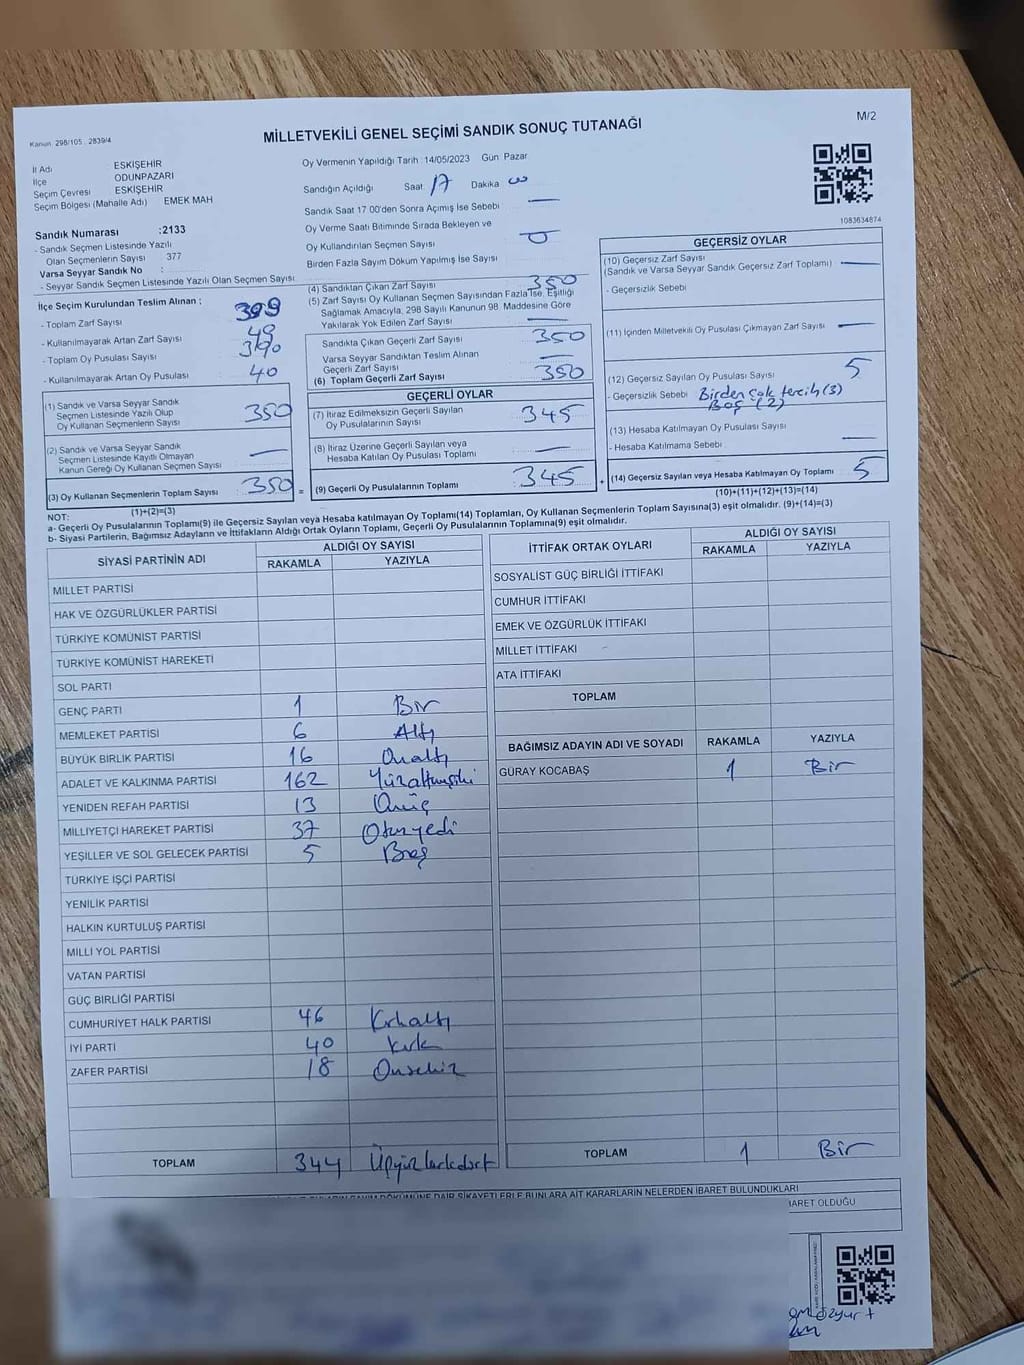 Kanun: 298/105 . 2839/4
MİLLETVEKİLİ GENEL SEÇİMİ SANDIK SONUÇ TUTANAĞI
M/2
İl Adı : ESKİŞEHİR
İlçe : ODUNPAZARI
Seçim Çevresi : ESKİŞEHİR
Seçim Bölgesi (Mahalle Adı) EMEK MAH
Sandık Numarası :2133
- Sandık Seçmen Listesinde Yazılı
Olan Seçmenlerin Sayısı : 377
Varsa Seyyar Sandık No :
- Seyyar Sandık Seçmen Listesinde Yazılı Olan Seçmen Sayısı:
Oy Vermenin Yapıldığı Tarih :14/05/2023 Gün: Pazar
Sandığın Açıldığı Saat: 17 Dakika
Sandık Saat 17:00'den Sonra Açımış İse Sebebi
Oy Verme Saati Bitiminde Sırada Bekleyen ve
Oy Kullandırılan Seçmen Sayısı
Birden Fazla Sayım Döküm Yapılmış İse Sayısı
1083634874
İlçe Seçim Kurulundan Teslim Alınan ;
- Toplam Zarf Sayısı 399
- Kullanılmayarak Artan Zarf Sayısı 49
- Toplam Oy Pusulası Sayısı 390
- Kullanılmayarak Artan Oy Pusulası 40
(1) Sandık ve Varsa Seyyar Sandık
Seçmen Listesinde Yazılı Olup
Oy Kullanan Seçmenlerin Sayısı : 350
(2) Sandık ve Varsa Seyyar Sandık
Seçmen Listesinde Kayıtlı Olmayan
Kanun Gereği Oy Kullanan Seçmen Sayısı —
(3) Oy Kullanan Seçmenlerin Toplam Sayısı : 350 =
(1)+(2)=(3)
(4) Sandıktan Çıkan Zarf Sayısı : 350
(5) Zarf Sayısı Oy Kullanan Seçmen Sayısından Fazla İse, Eşitliği
Sağlamak Amacıyla, 298 Sayılı Kanunun 98. Maddesine Göre
Yakılarak Yok Edilen Zarf Sayısı —
Sandıkta Çıkan Geçerli Zarf Sayısı 350
Varsa Seyyar Sandıktan Teslim Alınan
Geçerli Zarf Sayısı —
(6) Toplam Geçerli Zarf Sayısı 350
GEÇERLİ OYLAR
(7) İtiraz Edilmeksizin Geçerli Sayılan
Oy Pusulalarının Sayısı : 345
(8) İtiraz Üzerine Geçerli Sayılan veya
Hesaba Katılan Oy Pusulası Toplamı —
(9) Geçerli Oy Pusulalarının Toplamı : 345 +
GEÇERSİZ OYLAR
(10) Geçersiz Zarf Sayısı
(Sandık ve Varsa Seyyar Sandık Geçersiz Zarf Toplamı) : —
- Geçersizlik Sebebi :
(11) İçinden Milletvekili Oy Pusulası Çıkmayan Zarf Sayısı —
(12) Geçersiz Sayılan Oy Pusulası Sayısı : 5
- Geçersizlik Sebebi : Birden çok tercih (3)
Boş (2)
(13) Hesaba Katılmayan Oy Pusulası Sayısı
- Hesaba Katılmama Sebebi : —
(14) Geçersiz Sayılan veya Hesaba Katılmayan Oy Toplamı 5
(10)+(11)+(12)+(13)=(14)
NOT:
a- Geçerli Oy Pusulalarının Toplamı(9) ile Geçersiz Sayılan veya Hesaba katılmayan Oy Toplamı(14) Toplamları, Oy Kullanan Seçmenlerin Toplam Sayısına(3) eşit olmalıdır. (9)+(14)=(3)
b- Siyasi Partilerin, Bağımsız Adayların ve İttifakların Aldığı Ortak Oyların Toplamı, Geçerli Oy Pusulalarının Toplamına(9) eşit olmalıdır.
SİYASİ PARTİNİN ADI ALDIĞI OY SAYISI
RAKAMLA YAZIYLA
MİLLET PARTİSİ
HAK VE ÖZGÜRLÜKLER PARTİSİ
TÜRKİYE KOMÜNİST PARTİSİ
TÜRKİYE KOMÜNİST HAREKETİ
SOL PARTİ
GENÇ PARTİ 1 Bir
MEMLEKET PARTİSİ 6 Altı
BÜYÜK BİRLİK PARTİSİ 16 Onaltı
ADALET VE KALKINMA PARTİSİ 162 Yüzaltmışiki
YENİDEN REFAH PARTİSİ 13 Onüç
MİLLİYETÇİ HAREKET PARTİSİ 37 Otuzyedi
YEŞİLLER VE SOL GELECEK PARTİSİ 5 Beş
TÜRKİYE İŞÇİ PARTİSİ
YENİLİK PARTİSİ
HALKIN KURTULUŞ PARTİSİ
MİLLİ YOL PARTİSİ
VATAN PARTİSİ
GÜÇ BİRLİĞİ PARTİSİ
CUMHURİYET HALK PARTİSİ 46 Kırkaltı
İYİ PARTİ 40 Kırk
ZAFER PARTİSİ 18 Onsekiz
TOPLAM 344 Üçyüzkırkdört
İTTİFAK ORTAK OYLARI ALDIĞI OY SAYISI
RAKAMLA YAZIYLA
SOSYALİST GÜÇ BİRLİĞİ İTTİFAKI
CUMHUR İTTİFAKI
EMEK VE ÖZGÜRLÜK İTTİFAKI
MİLLET İTTİFAKI
ATA İTTİFAKI
TOPLAM
BAĞIMSIZ ADAYIN ADI VE SOYADI RAKAMLA YAZIYLA
GÜRAY KOCABAŞ 1 Bir
TOPLAM 1 Bir
SAYIM DÖKÜMÜNE DAİR ŞİKAYETLERLE BUNLARA AİT KARARLARIN NELERDEN İBARET BULUNDUKLARI
İBARET OLDUĞU